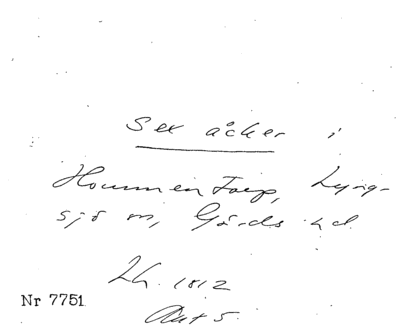 Sex åcker i
Hommentorp, Lyng-
sjö sn, Gärds hd.
Lh. 1812
Akt 5.
Nr 7751